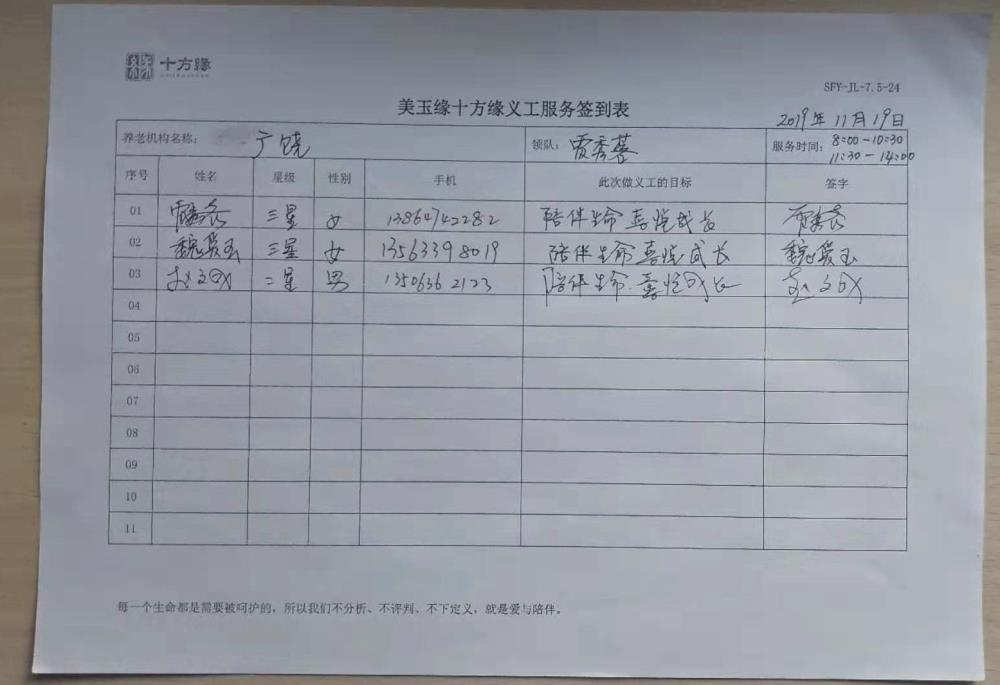 十方缘
SFY-JL-7.5-24
美玉缘十方缘义工服务签到表
2019年11月19日
养老机构名称： 广饶 领队：贾秀蓉 服务时间：8:00-10:30
11:30-14:00
序号 姓名 星级 性别 手机 此次做义工的目标 签字
01 三星 女 13864742282 陪伴生命 喜悦成长
02 魏爱玉 三星 女 13563398019 陪伴生命 喜悦成长 魏爱玉
03 二星 男 13506362123 陪伴生命.喜悦成长
04
05
06
07
08
09
10
11
每一个生命都是需要被呵护的，所以我们不分析、不评判、不下定义，就是爱与陪伴。